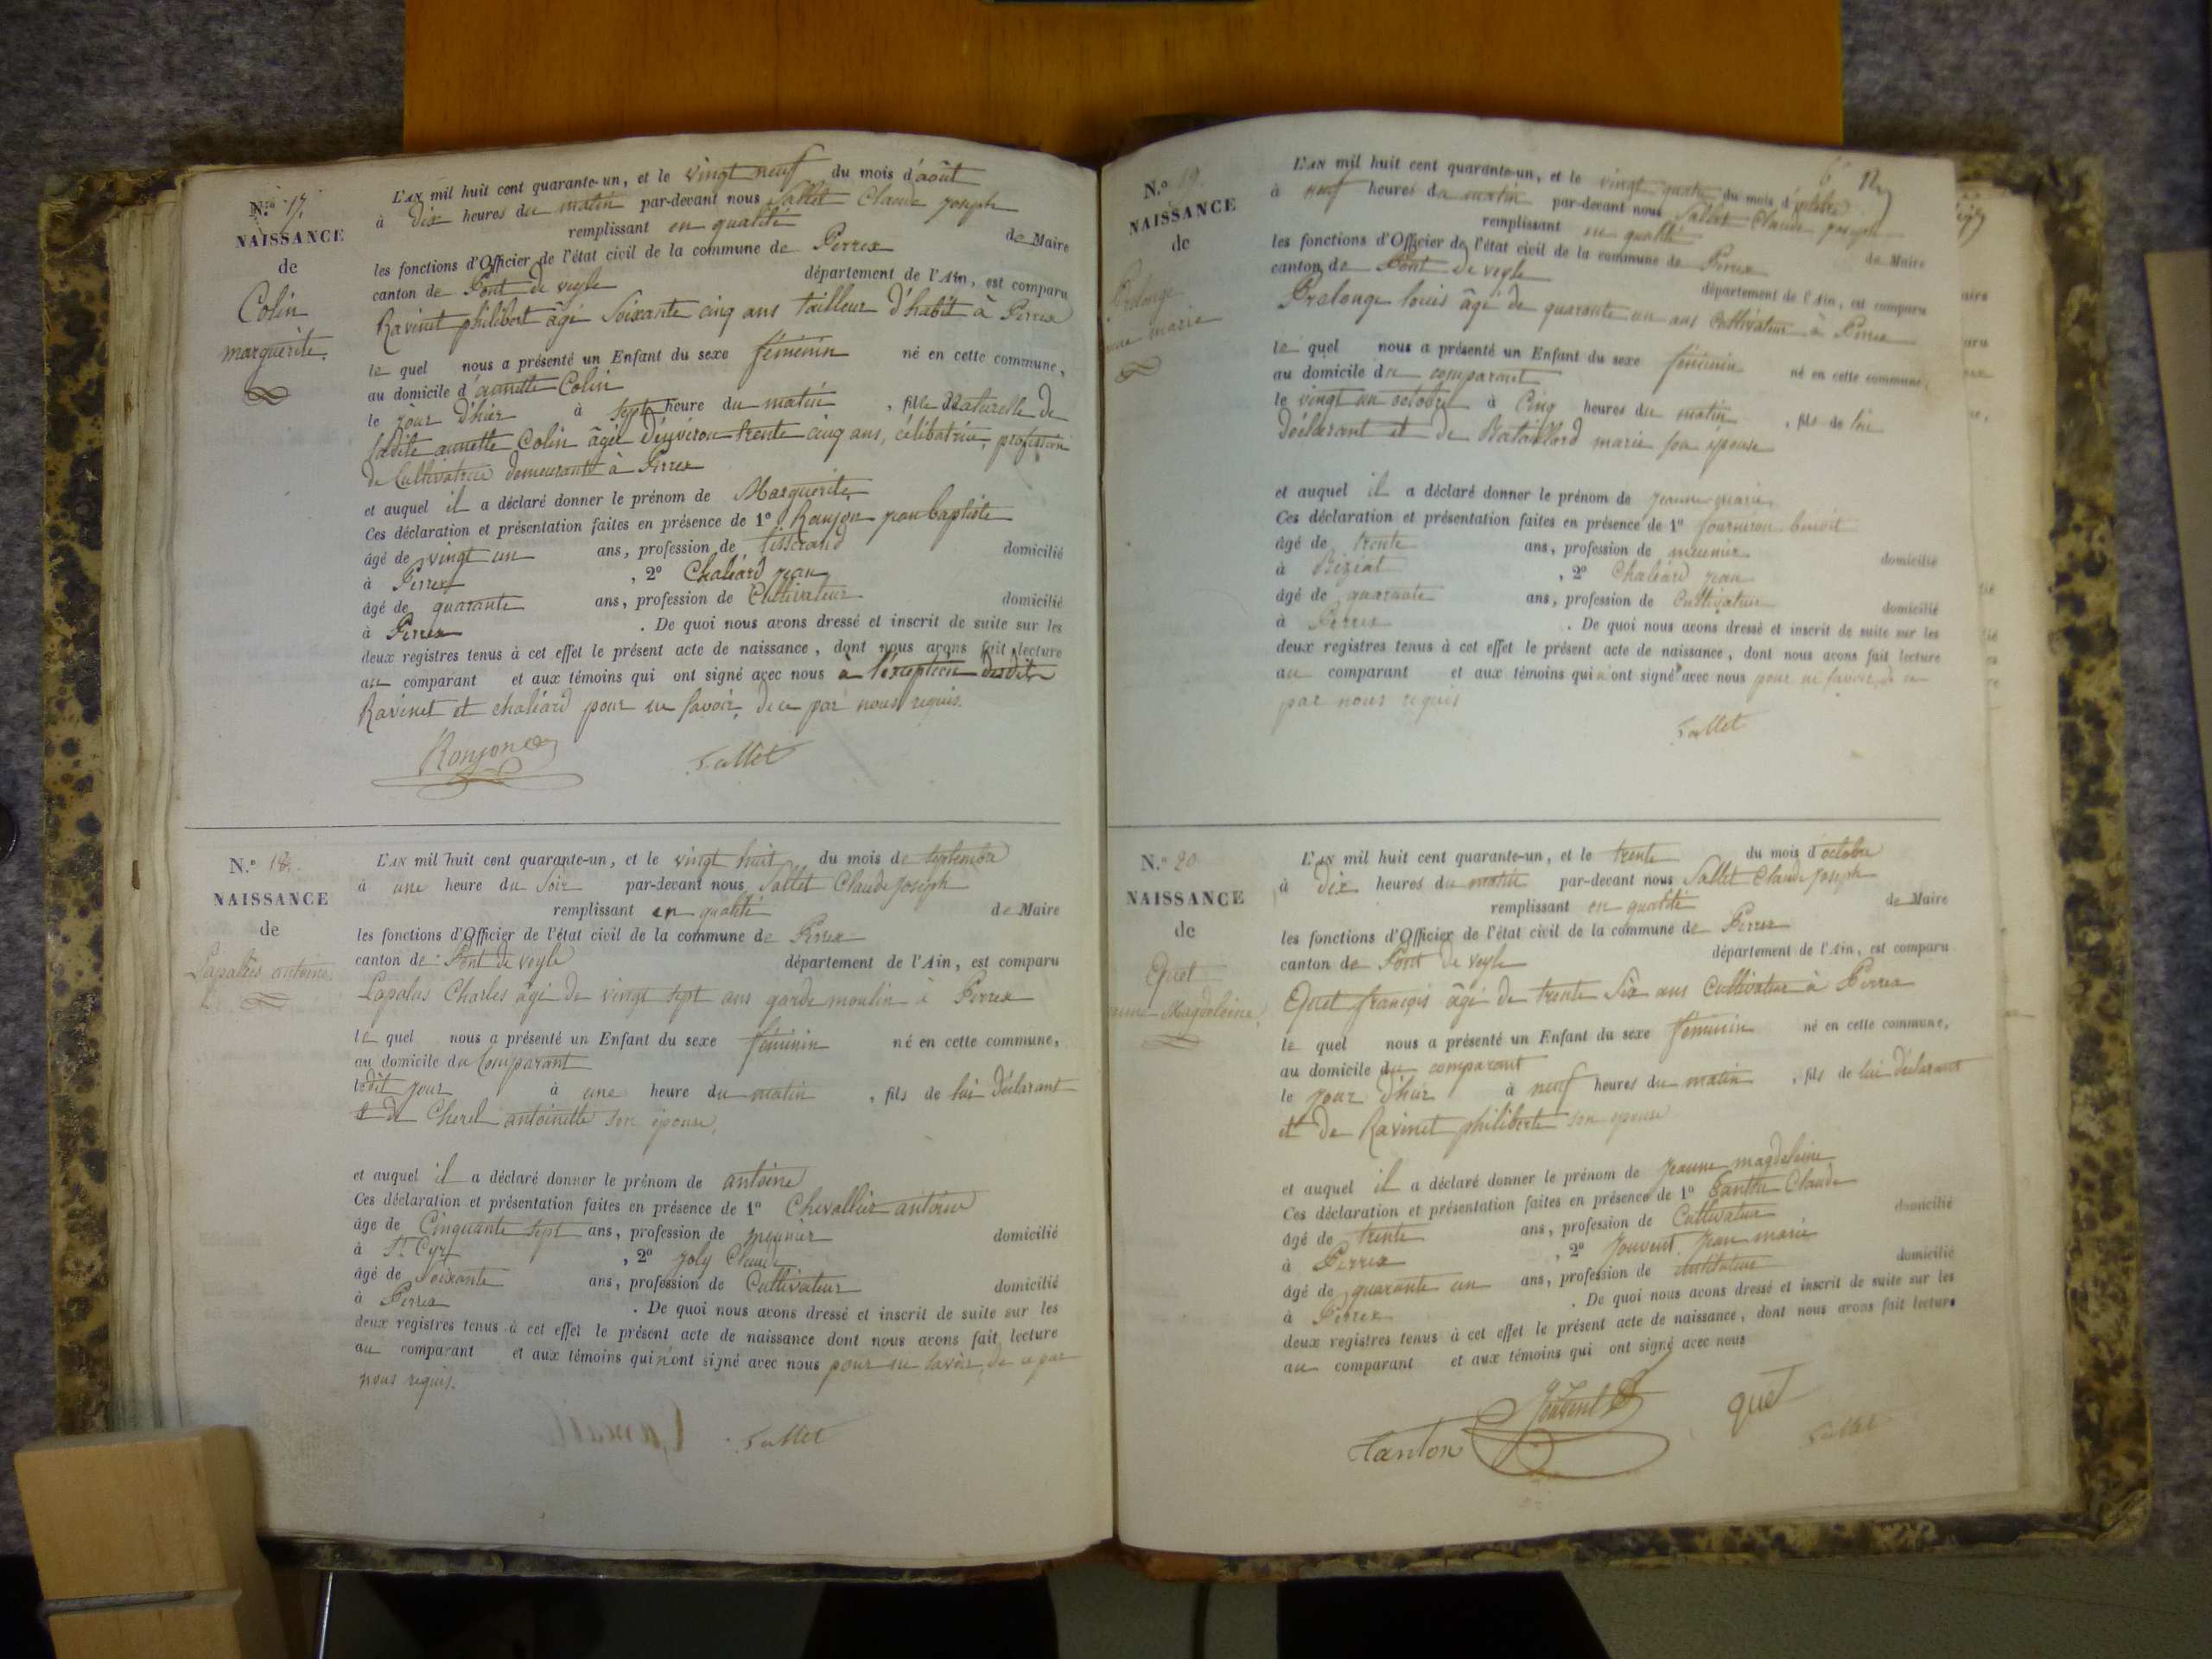 N.º 17.
NAISSANCE
de
Colin
marguerite.
L'AN mil huit cent quarante-un, et le vingt neuf du mois d'août
à dix heures du matin par-devant nous Sallet Claude joseph
remplissant en qualité de Maire
les fonctions d'Officier de l'état civil de la commune de Perrex
canton de Pont de veyle département de l'Ain, est comparu
Ravinet philibert âgé Soixante cinq ans tailleur d'habit à Perrex
le quel nous a présenté un Enfant du sexe féminin né en cette commune,
au domicile d'annette Colin
le jour d'hier à sept heure du matin, fille Naturelle de
ladite annette Colin âgée d'environ trente cinq ans, célibatrice, profession
de Cultivatrice demeurant à Perrex
et auquel il a déclaré donner le prénom de Marguerite
Ces déclaration et présentation faites en présence de 1º Ronjon jean baptiste
âgé de vingt un ans, profession de tisserand domicilié
à Perrex, 2º Chaléard jean
âgé de quarante ans, profession de Cultivateur domicilié
à Perrex. De quoi nous avons dressé et inscrit de suite sur les
deux registres tenus à cet effet le présent acte de naissance, dont nous avons fait lecture
au comparant et aux témoins qui ont signé avec nous à l'exception desdits
Ravinet et chaléard pour ne savoir, de ce par nous requis.
Ronjon Sallet
N.º 18.
NAISSANCE
de
Lapalus antoine
L'AN mil huit cent quarante-un, et le vingt huit du mois de septembre
à une heure du Soir par-devant nous Sallet Claude Joseph
remplissant en qualité de Maire
les fonctions d'Officier de l'état civil de la commune de Perrex
canton de Pont de veyle département de l'Ain, est comparu
Lapalus Charles âgé de vingt sept ans garde moulin à Perrex
le quel nous a présenté un Enfant du sexe féminin né en cette commune,
au domicile du Comparant
ledit jour à une heure du matin, fils de lui Déclarant
& de Cherel antoinette son épouse,
et auquel il a déclaré donner le prénom de antoine
Ces déclaration et présentation faites en présence de 1º Chevallier antoine
âgé de Cinquante sept ans, profession de meunier domicilié
à St. Cyr, 2º joly Claude
âgé de Soixante ans, profession de Cultivateur domicilié
à Perrex. De quoi nous avons dressé et inscrit de suite sur les
deux registres tenus à cet effet le présent acte de naissance dont nous avons fait lecture
au comparant et aux témoins qui n'ont signé avec nous pour ne savoir, de ce par
nous requis.
Sallet
N.º 19.
NAISSANCE
de
Pralonge
marie
L'AN mil huit cent quarante-un, et le vingt quatre du mois d'octobre
à neuf heures du matin par-devant nous Sallet Claude joseph
remplissant en qualité de Maire
les fonctions d'Officier de l'état civil de la commune de Perrex
canton de Pont de veyle département de l'Ain, est comparu
Pralonge louis âgé de quarante un ans Cultivateur à Perrex
le quel nous a présenté un Enfant du sexe féminin né en cette commune,
au domicile du comparant
le vingt un octobre à Cinq heures du matin, fils de lui
Déclarant et de Bataillard marie son épouse
et auquel il a déclaré donner le prénom de jeanne marie
Ces déclaration et présentation faites en présence de 1º fourniron benoit
âgé de trente ans, profession de meunier domicilié
à Biziat, 2º Chaléard jean
âgé de quarante ans, profession de Cultivateur domicilié
à Perrex. De quoi nous avons dressé et inscrit de suite sur les
deux registres tenus à cet effet le présent acte de naissance, dont nous avons fait lecture
au comparant et aux témoins qui n'ont signé avec nous pour ne savoir, de ce
par nous requis
Sallet
N.º 20.
NAISSANCE
de
Quet
Magdeleine
L'AN mil huit cent quarante-un, et le trente du mois d'octobre
à Dix heures du matin par-devant nous Sallet Claude joseph
remplissant en qualité de Maire
les fonctions d'Officier de l'état civil de la commune de Perrex
canton de Pont de veyle département de l'Ain, est comparu
Quet françois âgé de trente Six ans Cultivateur à Perrex
le quel nous a présenté un Enfant du sexe féminin né en cette commune,
au domicile du comparant
le jour d'hier à neuf heures du matin, fils de lui déclarant
et de Ravinet philiberte son épouse
et auquel il a déclaré donner le prénom de jeanne magdeleine
Ces déclaration et présentation faites en présence de 1º Claude
âgé de trente ans, profession de Cultivateur domicilié
à Perrex, 2º Jouvent jean marie
âgé de quarante un ans, profession de instituteur domicilié
à Perrex. De quoi nous avons dressé et inscrit de suite sur les
deux registres tenus à cet effet le présent acte de naissance, dont nous avons fait lecture
au comparant et aux témoins qui ont signé avec nous
Jouvent quet
Sallet